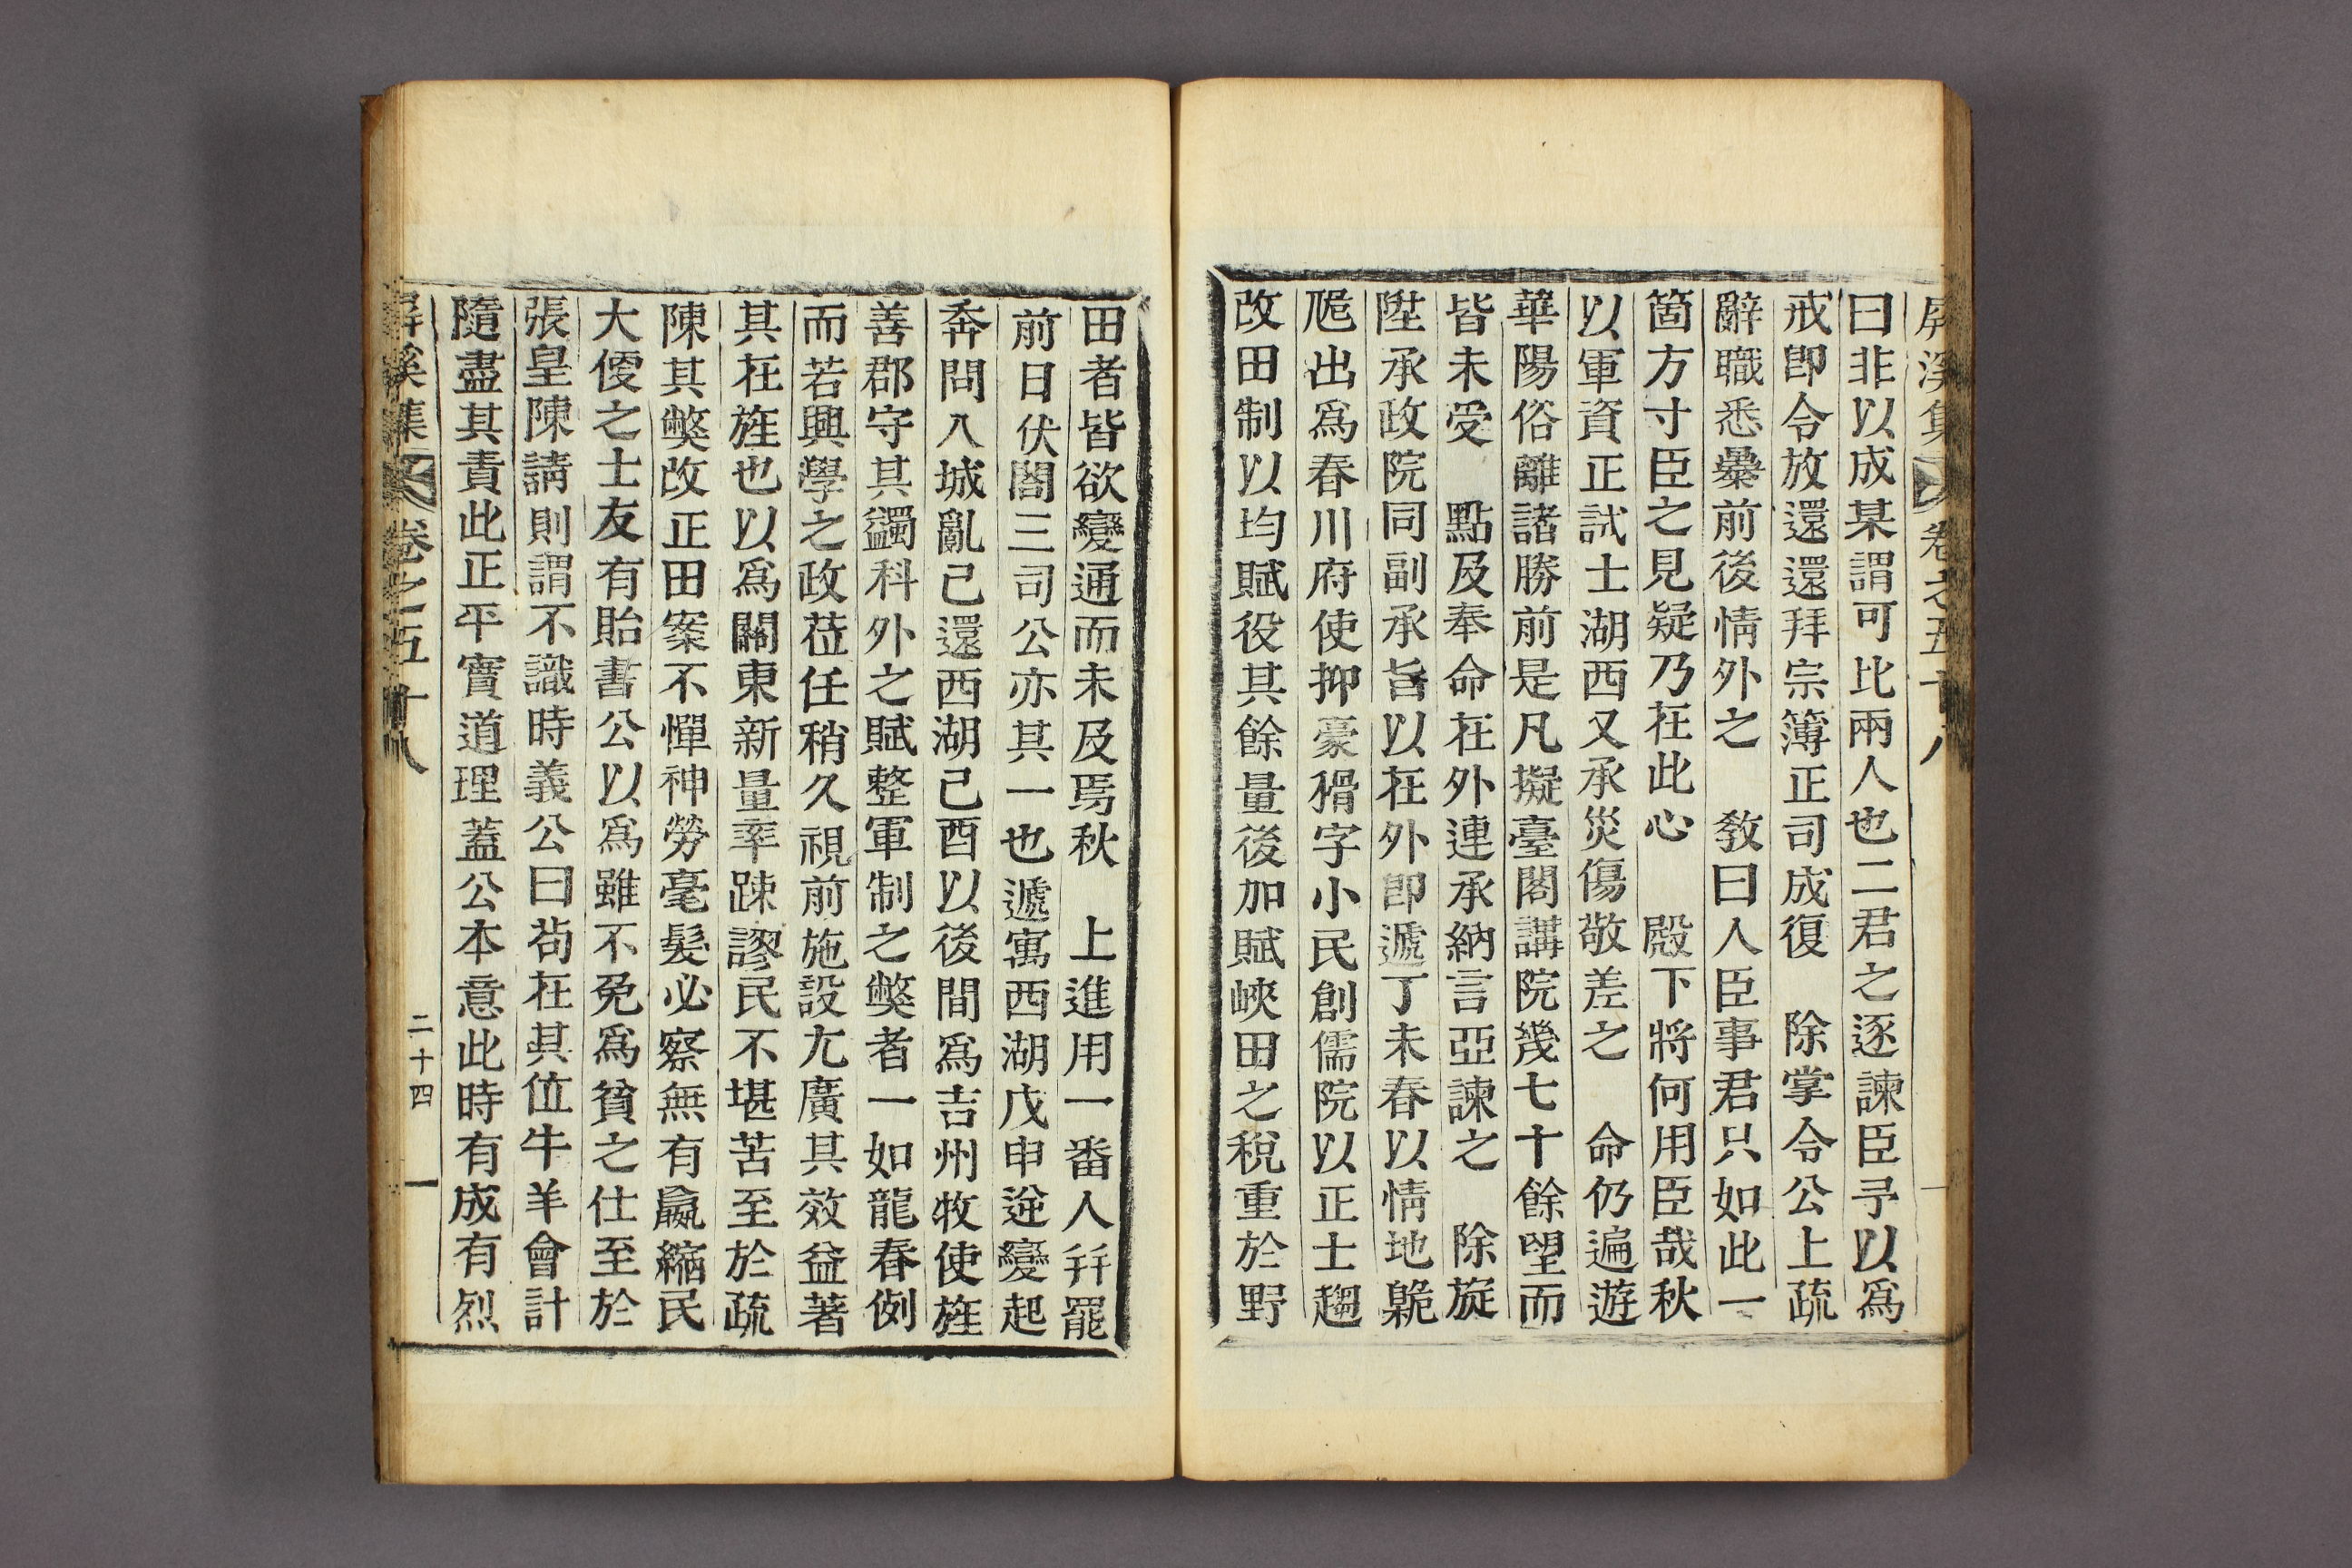 屛溪集 卷之五十八
曰非以成某謂可比兩人也二君之逐諫臣予以爲
戒卽令放還還拜宗簿正司成復 除掌令公上疏
辭職悉暴前後情外之 敎曰人臣事君只如此一
箇方寸臣之見疑乃在此心 殿下將何用臣哉秋
以軍資正試士湖西又承災傷敬差之 命仍遍遊
華陽俗離諸勝前是凡擬臺閣講院幾七十餘望而
皆未受 點及奉命在外連承納言亞諫之 除旋
陞承政院同副承旨以在外卽遞丁未春以情地臲
卼出爲春川府使抑豪猾字小民創儒院以正士趨
改田制以均賦役其餘量後加賦峽田之稅重於野
田者皆欲變通而未及焉秋 上進用一番人幷罷
前日伏閤三司公亦其一也遞寓西湖戊申逆變起
奔問入城亂已還西湖己酉以後間爲吉州牧使旌
善郡守其蠲科外之賦整軍制之弊者一如龍春例
而若興學之政莅任稍久視前施設尤廣其效益著
其在旌也以爲關東新量率踈謬民不堪苦至於疏
陳其弊改正田案不憚神勞毫髮必察無有羸縮民
大便之士友有貽書公以爲雖不免爲貧之仕至於
張皇陳請則謂不識時義公曰苟在其位牛羊會計
隨盡其責此正平實道理蓋公本意此時有成有烈
屛溪集 卷之五十八 二十四